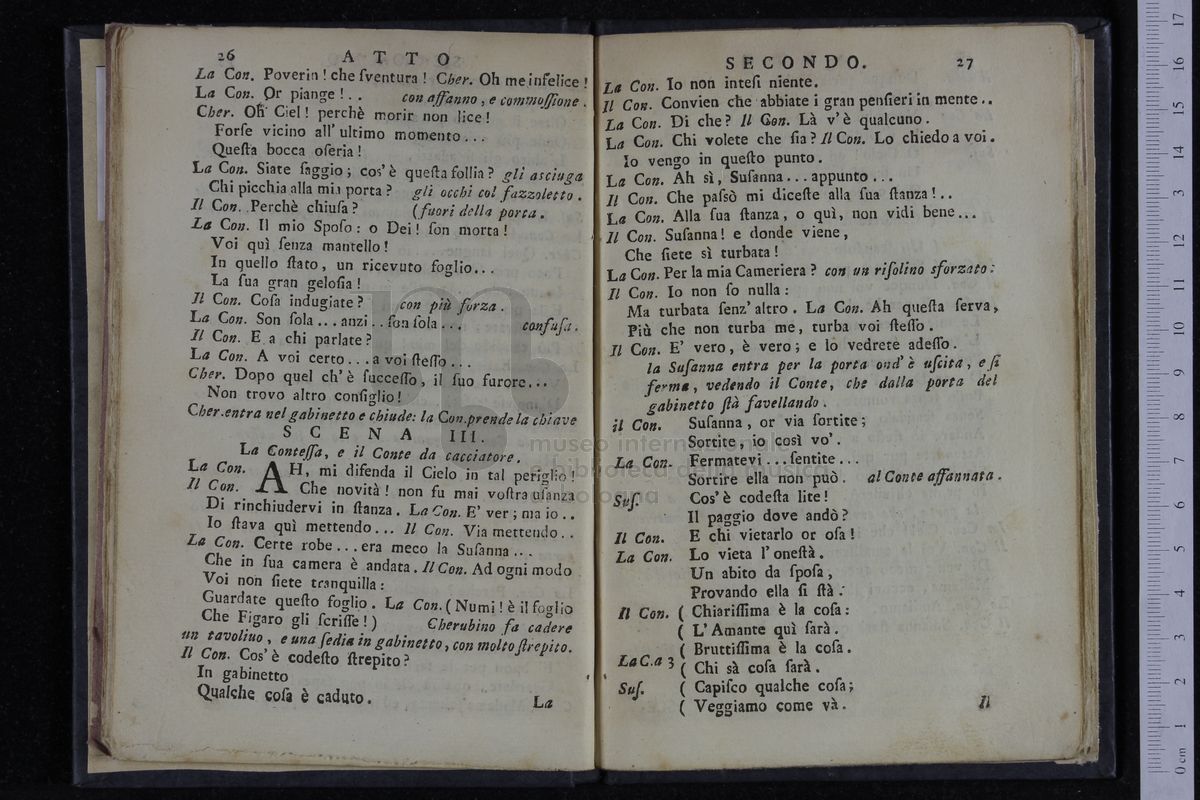 26 ATTO
La Con. Poverin! che ſventura! Cher. Oh me infelice!
La Con. Or piange!.. con affanno, e commoſſione.
Cher. Oh Ciel! perchè morir non lice!
Forſe vicino all' ultimo momento...
Queſta bocca oſeria!
La Con. Siate ſaggio; cos' è queſta follia? gli asciuga
Chi picchia alla mia porta? gli occhi col fazzoletto.
Il Con. Perchè chiuſa? (fuori della porta.
La Con. Il mio Spoſo: o Dei! ſon morta!
Voi quì ſenza mantello!
In quello ſtato, un ricevuto foglio...
La ſua gran geloſia!
Il Con. Coſa indugiate? con più forza.
La Con. Son ſola... anzi.. ſon ſola... confuſa.
Il Con. E a chi parlate?
La Con. A voi certo... a voi ſteſſo...
Cher. Dopo quel ch' è ſucceſſo, il ſuo furore...
Non trovo altro conſiglio!
Cher. entra nel gabinetto e chiude: la Con. prende la chiave
SCENA III.
La Conteſſa, e il Conte da cacciatore.
La Con. AH, mi difenda il Cielo in tal periglio!
Il Con. Che novità! non fu mai voſtra uſanza
Di rinchiudervi in ſtanza. La Con. E' ver; ma io..
Io ſtava quì mettendo... Il Con. Via mettendo..
La Con. Certe robe... era meco la Suſanna...
Che in ſua camera è andata. Il Con. Ad ogni modo
Voi non ſiete tranquilla:
Guardate queſto foglio. La Con. (Numi! è il foglio
Che Figaro gli ſcriſſe!) Cherubino fa cadere
un tavolino, e una ſedia in gabinetto, con molto ſtrepito.
Il Con. Cos' è codeſto ſtrepito?
In gabinetto
Qualche coſa è caduto. La
SECONDO. 27
La Con. Io non inteſi niente.
Il Con. Convien che abbiate i gran penſieri in mente..
La Con. Di che? Il Con. Là v' è qualcuno.
La Con. Chi volete che ſia? Il Con. Lo chiedo a voi.
Io vengo in queſto punto.
La Con. Ah sì, Suſanna... appunto...
Il Con. Che paſsò mi diceſte alla ſua ſtanza!..
La Con. Alla ſua ſtanza, o quì, non vidi bene...
Il Con. Suſanna! e donde viene,
Che ſiete sì turbata!
La Con. Per la mia Cameriera? con un riſolino sforzato:
Il Con. Io non ſo nulla:
Ma turbata ſenz' altro. La Con. Ah queſta ſerva,
Più che non turba me, turba voi ſteſſo.
Il Con. E' vero, è vero; e lo vedrete adeſſo.
la Suſanna entra per la porta ond' è uſcita, e ſi
ferma, vedendo il Conte, che dalla porta del
gabinetto ſtà favellando.
il Con. Suſanna, or via ſortite;
Sortite, io così vo'.
La Con. Fermatevi... ſentite...
Sortire ella non può. al Conte affannata.
Suſ. Cos' è codeſta lite!
Il paggio dove andò?
Il Con. E chi vietarlo or oſa!
La Con. Lo vieta l' oneſtà.
Un abito da ſpoſa,
Provando ella ſi ſtà.
Il Con. ( Chiariſſima è la coſa:
( L' Amante quì ſarà.
( Bruttiſſima è la coſa.
La C. a 3 ( Chi sà coſa ſarà.
Suſ. ( Capiſco qualche coſa;
( Veggiamo come và. Il
museo internazionale
e biblioteca della musica
bologna